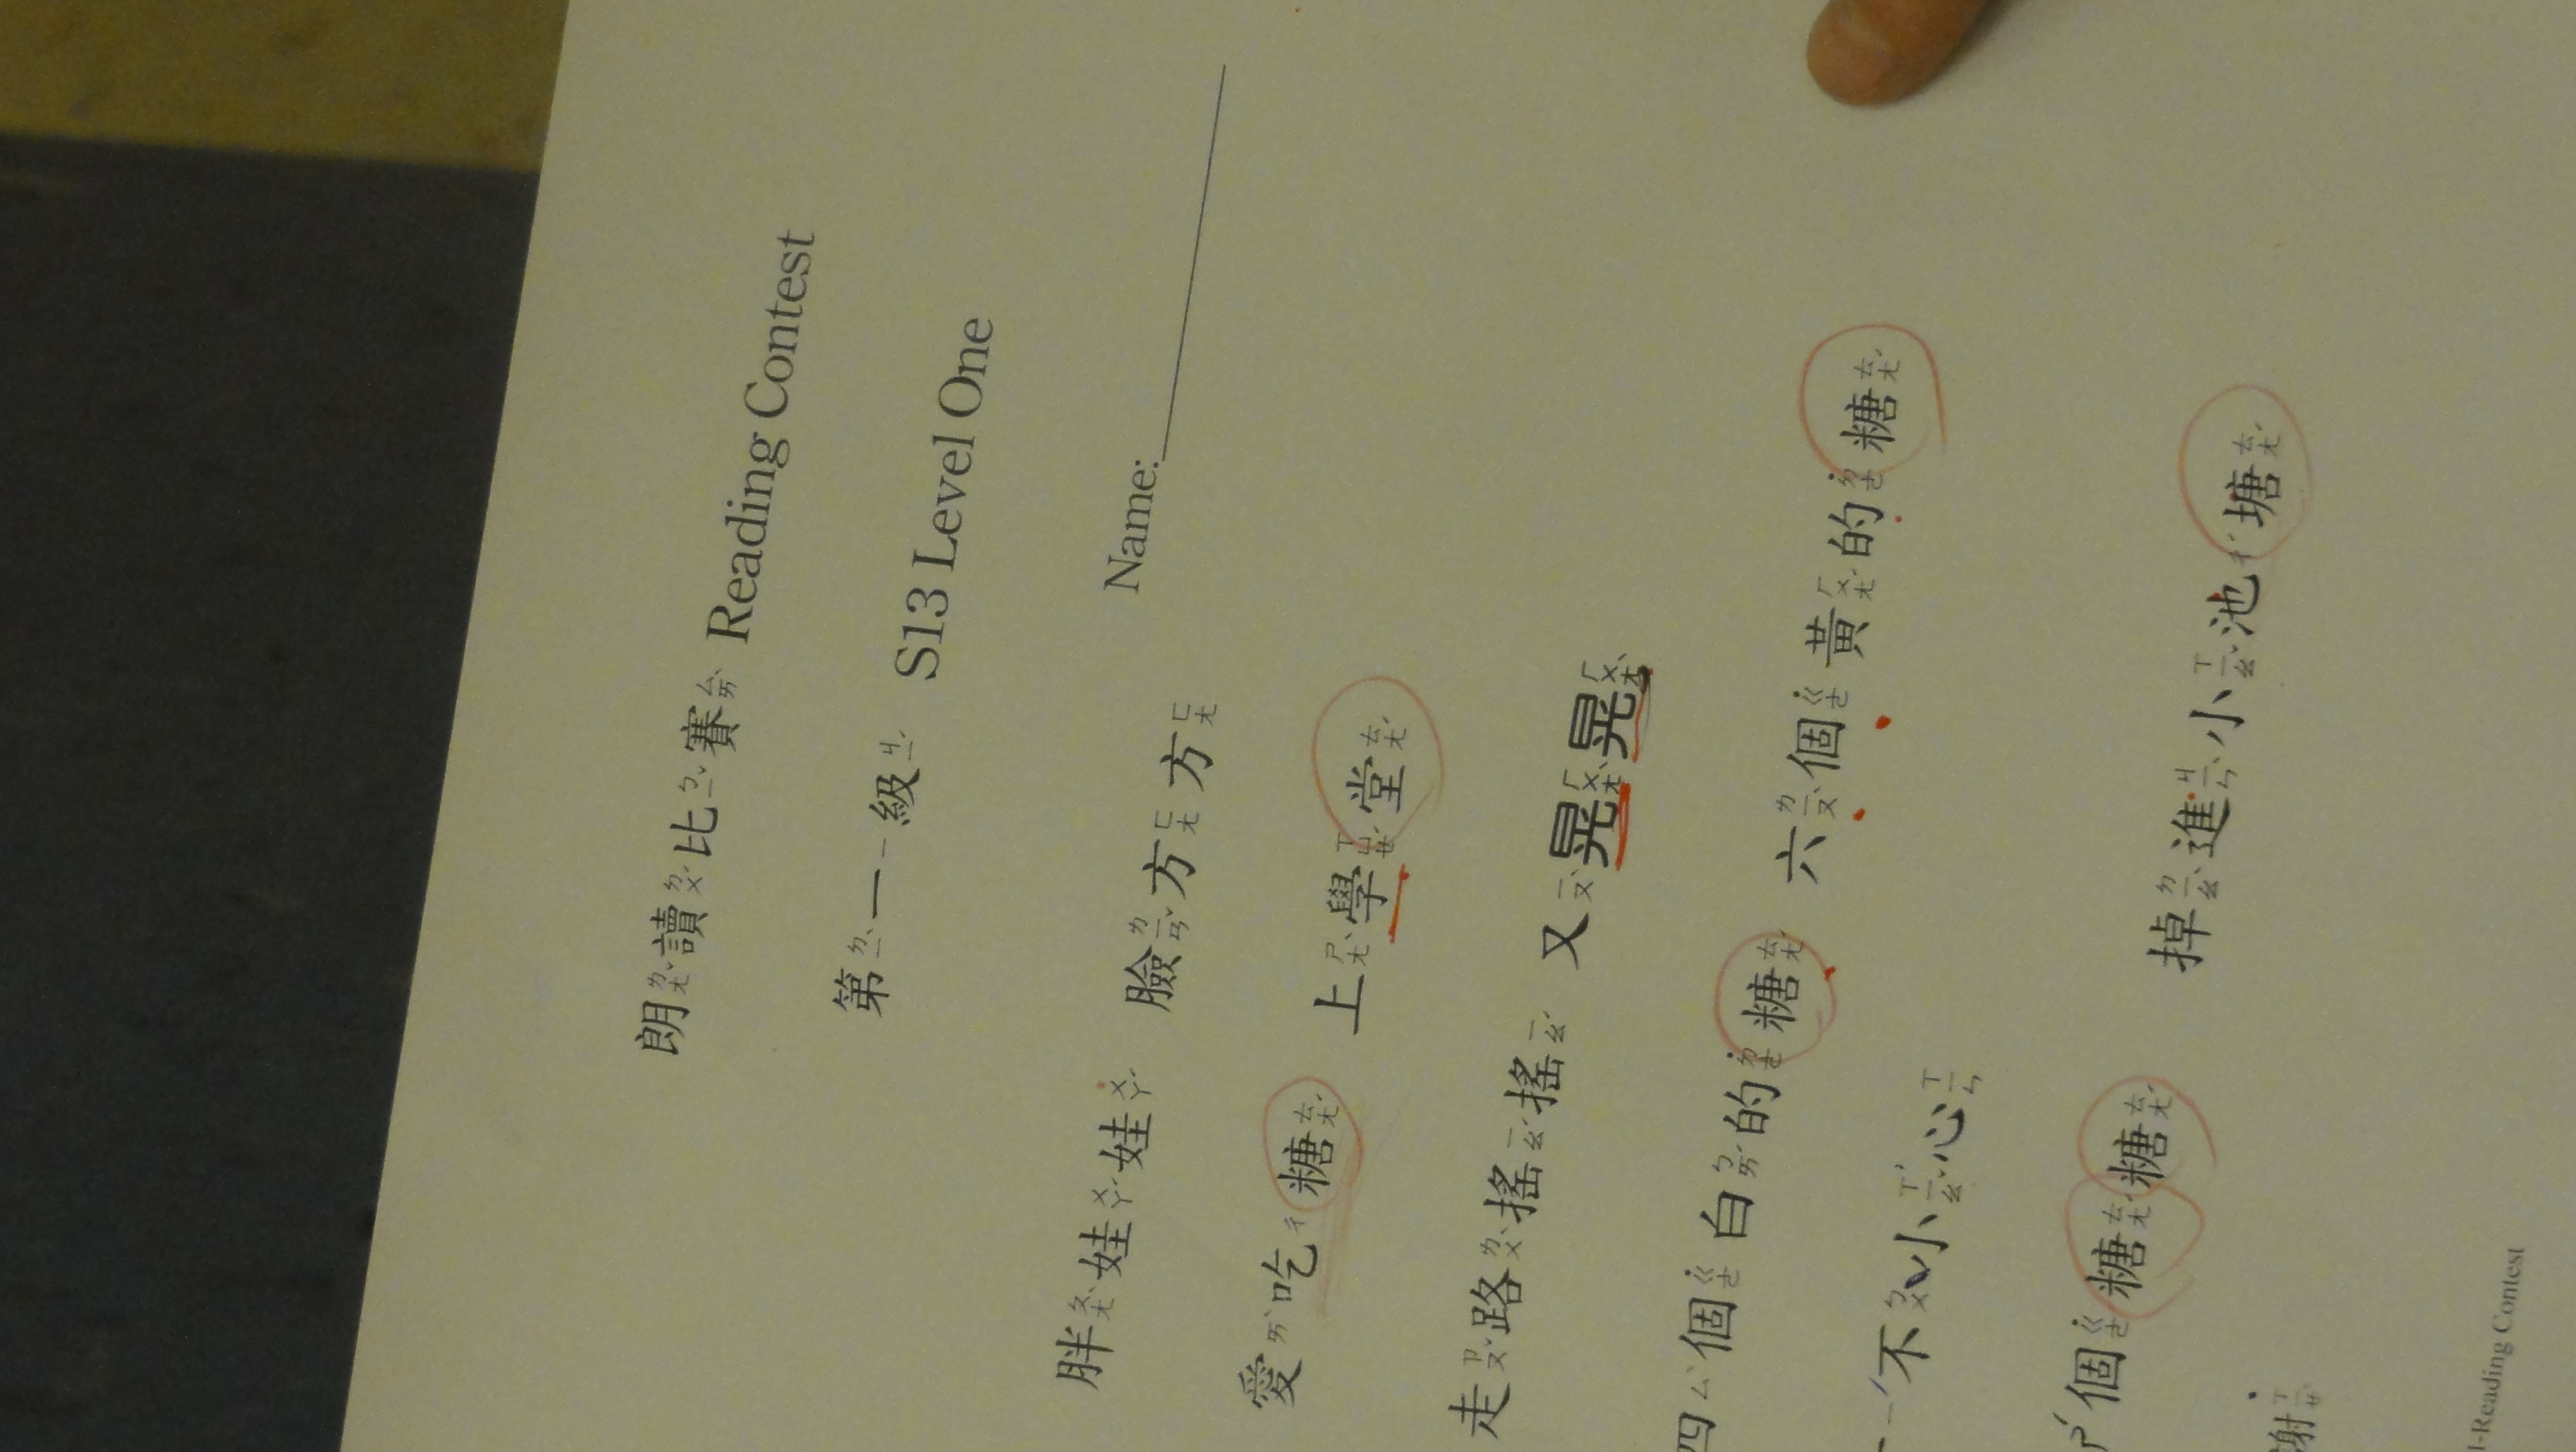 朗讀比賽 Reading Contest
第一級 S13 Level One
Name:
胖娃娃 臉方方
愛吃糖 上學堂
走路搖搖 又晃晃
四個白的糖 六個黃的糖
不小心
個糖糖 掉進小池塘
謝
l-Reading Contest